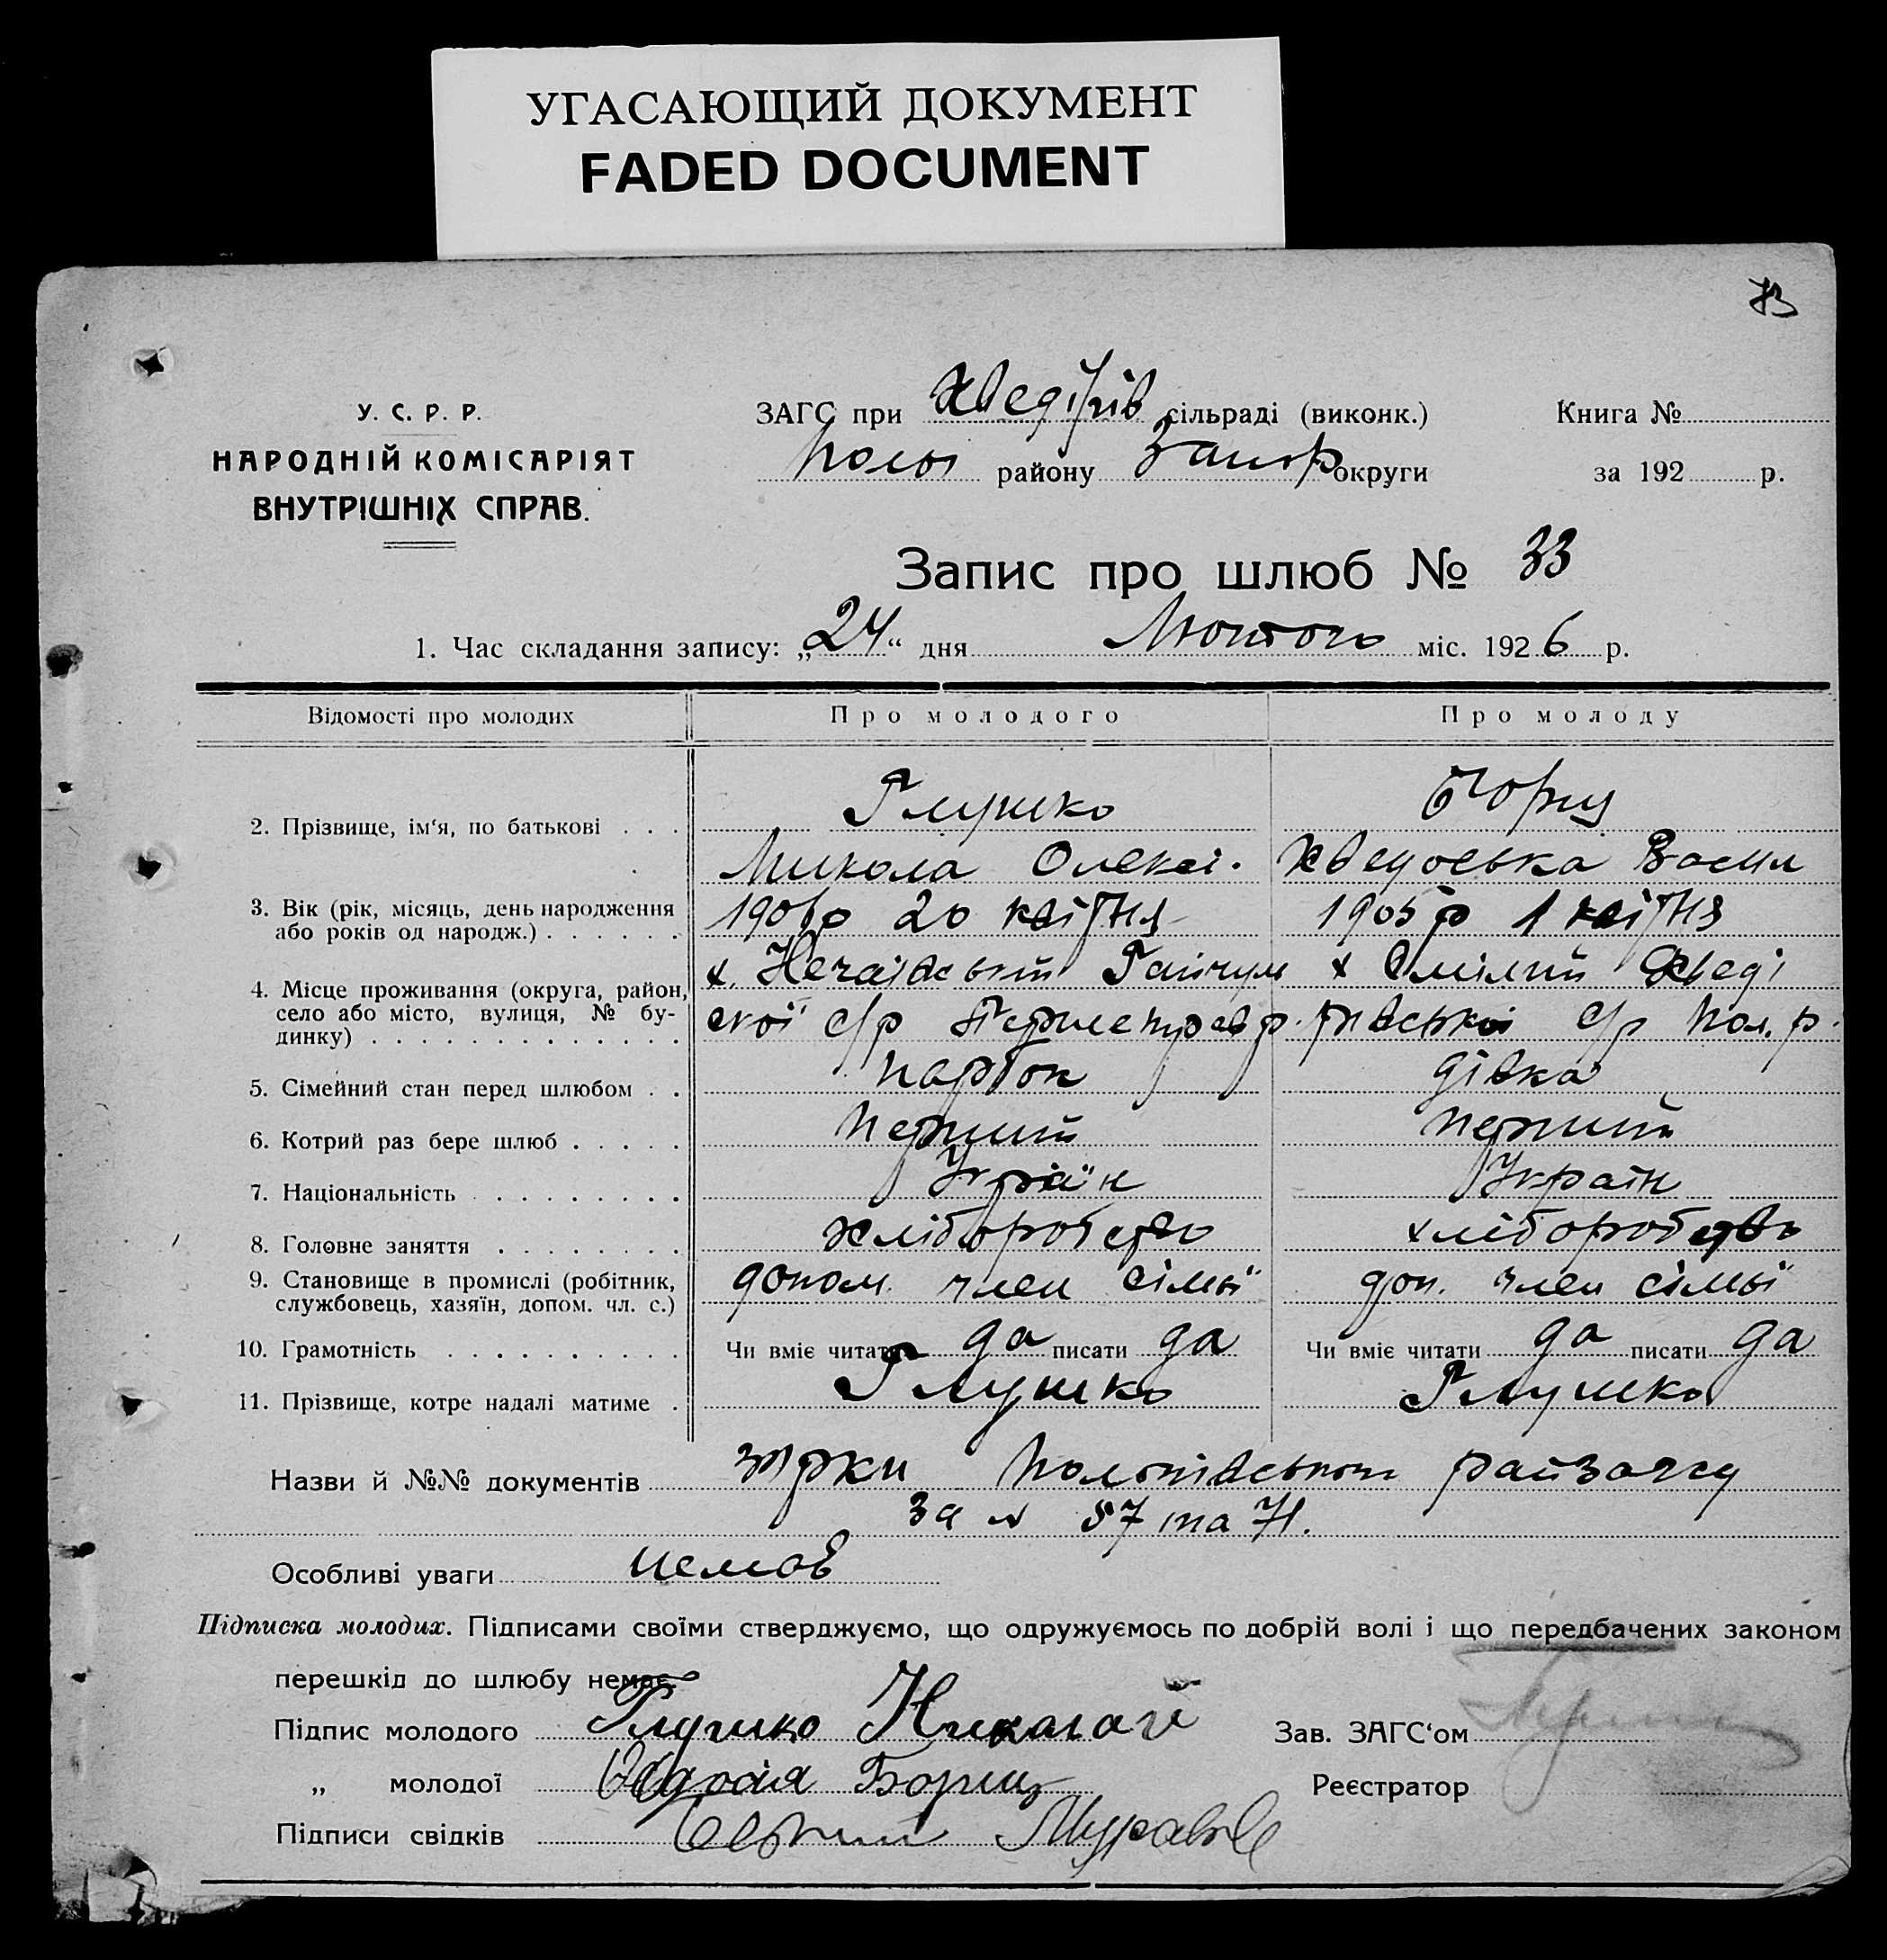 УГАСАЮЩИЙ ДОКУМЕНТ
FADED DOCUMENT
У. С. Р. Р.
НАРОДНІЙ КОМІСАРІЯТ
ВНУТРІШНІХ СПРАВ.
ЗАГС при Хведірів сільраді (виконк.)
Полог району Запор округи
Книга №
за 192 р.
Запис про шлюб № 33
1. Час складання запису: „24“ дня Лютого міс. 1926 р.
Відомості про молодих Про молодого Про молоду
2. Прізвище, ім‘я, по батькові . . . Глушко Борщ
Микола Олексі. Хведоська Васил
3. Вік (рік, місяць, день народження 20 квітня 1905 р 1 квітня
або років од народж.) . . . . . .
4. Місце проживання (округа, район, х. Нечаївський Гайчул х Смілий Хведі
село або місто, вулиця, № бу- ської с/р р. рівської с/р Пол. р.
динку) . . . . . . . . . . . . .
5. Сімейний стан перед шлюбом . . парубок дівка
6. Котрий раз бере шлюб . . . . . перший перший
7. Національність . . . . . . . . . Україн Україн
8. Головне заняття . . . . . . . . хліборобство хліборобство
9. Становище в промислі (робітник, допом. член сімьї доп. член сімьї
службовець, хазяїн, допом. чл. с.)
10. Грамотність . . . . . . . . . . Чи вміє читати да писати да Чи вміє читати да писати да
11. Прізвище, котре надалі матиме . Глушко Глушко
Назви й №№ документів Пологівського райзагсу
за № 57 та 71.
Особливі уваги немає
Підписка молодих. Підписами своїми стверджуємо, що одружуємось по добрій волі і що передбачених законом
перешкід до шлюбу немає.
Підпис молодого Глушко Николай Зав. ЗАГС‘ом
„ молодої Борщ Реєстратор
Підписи свідків